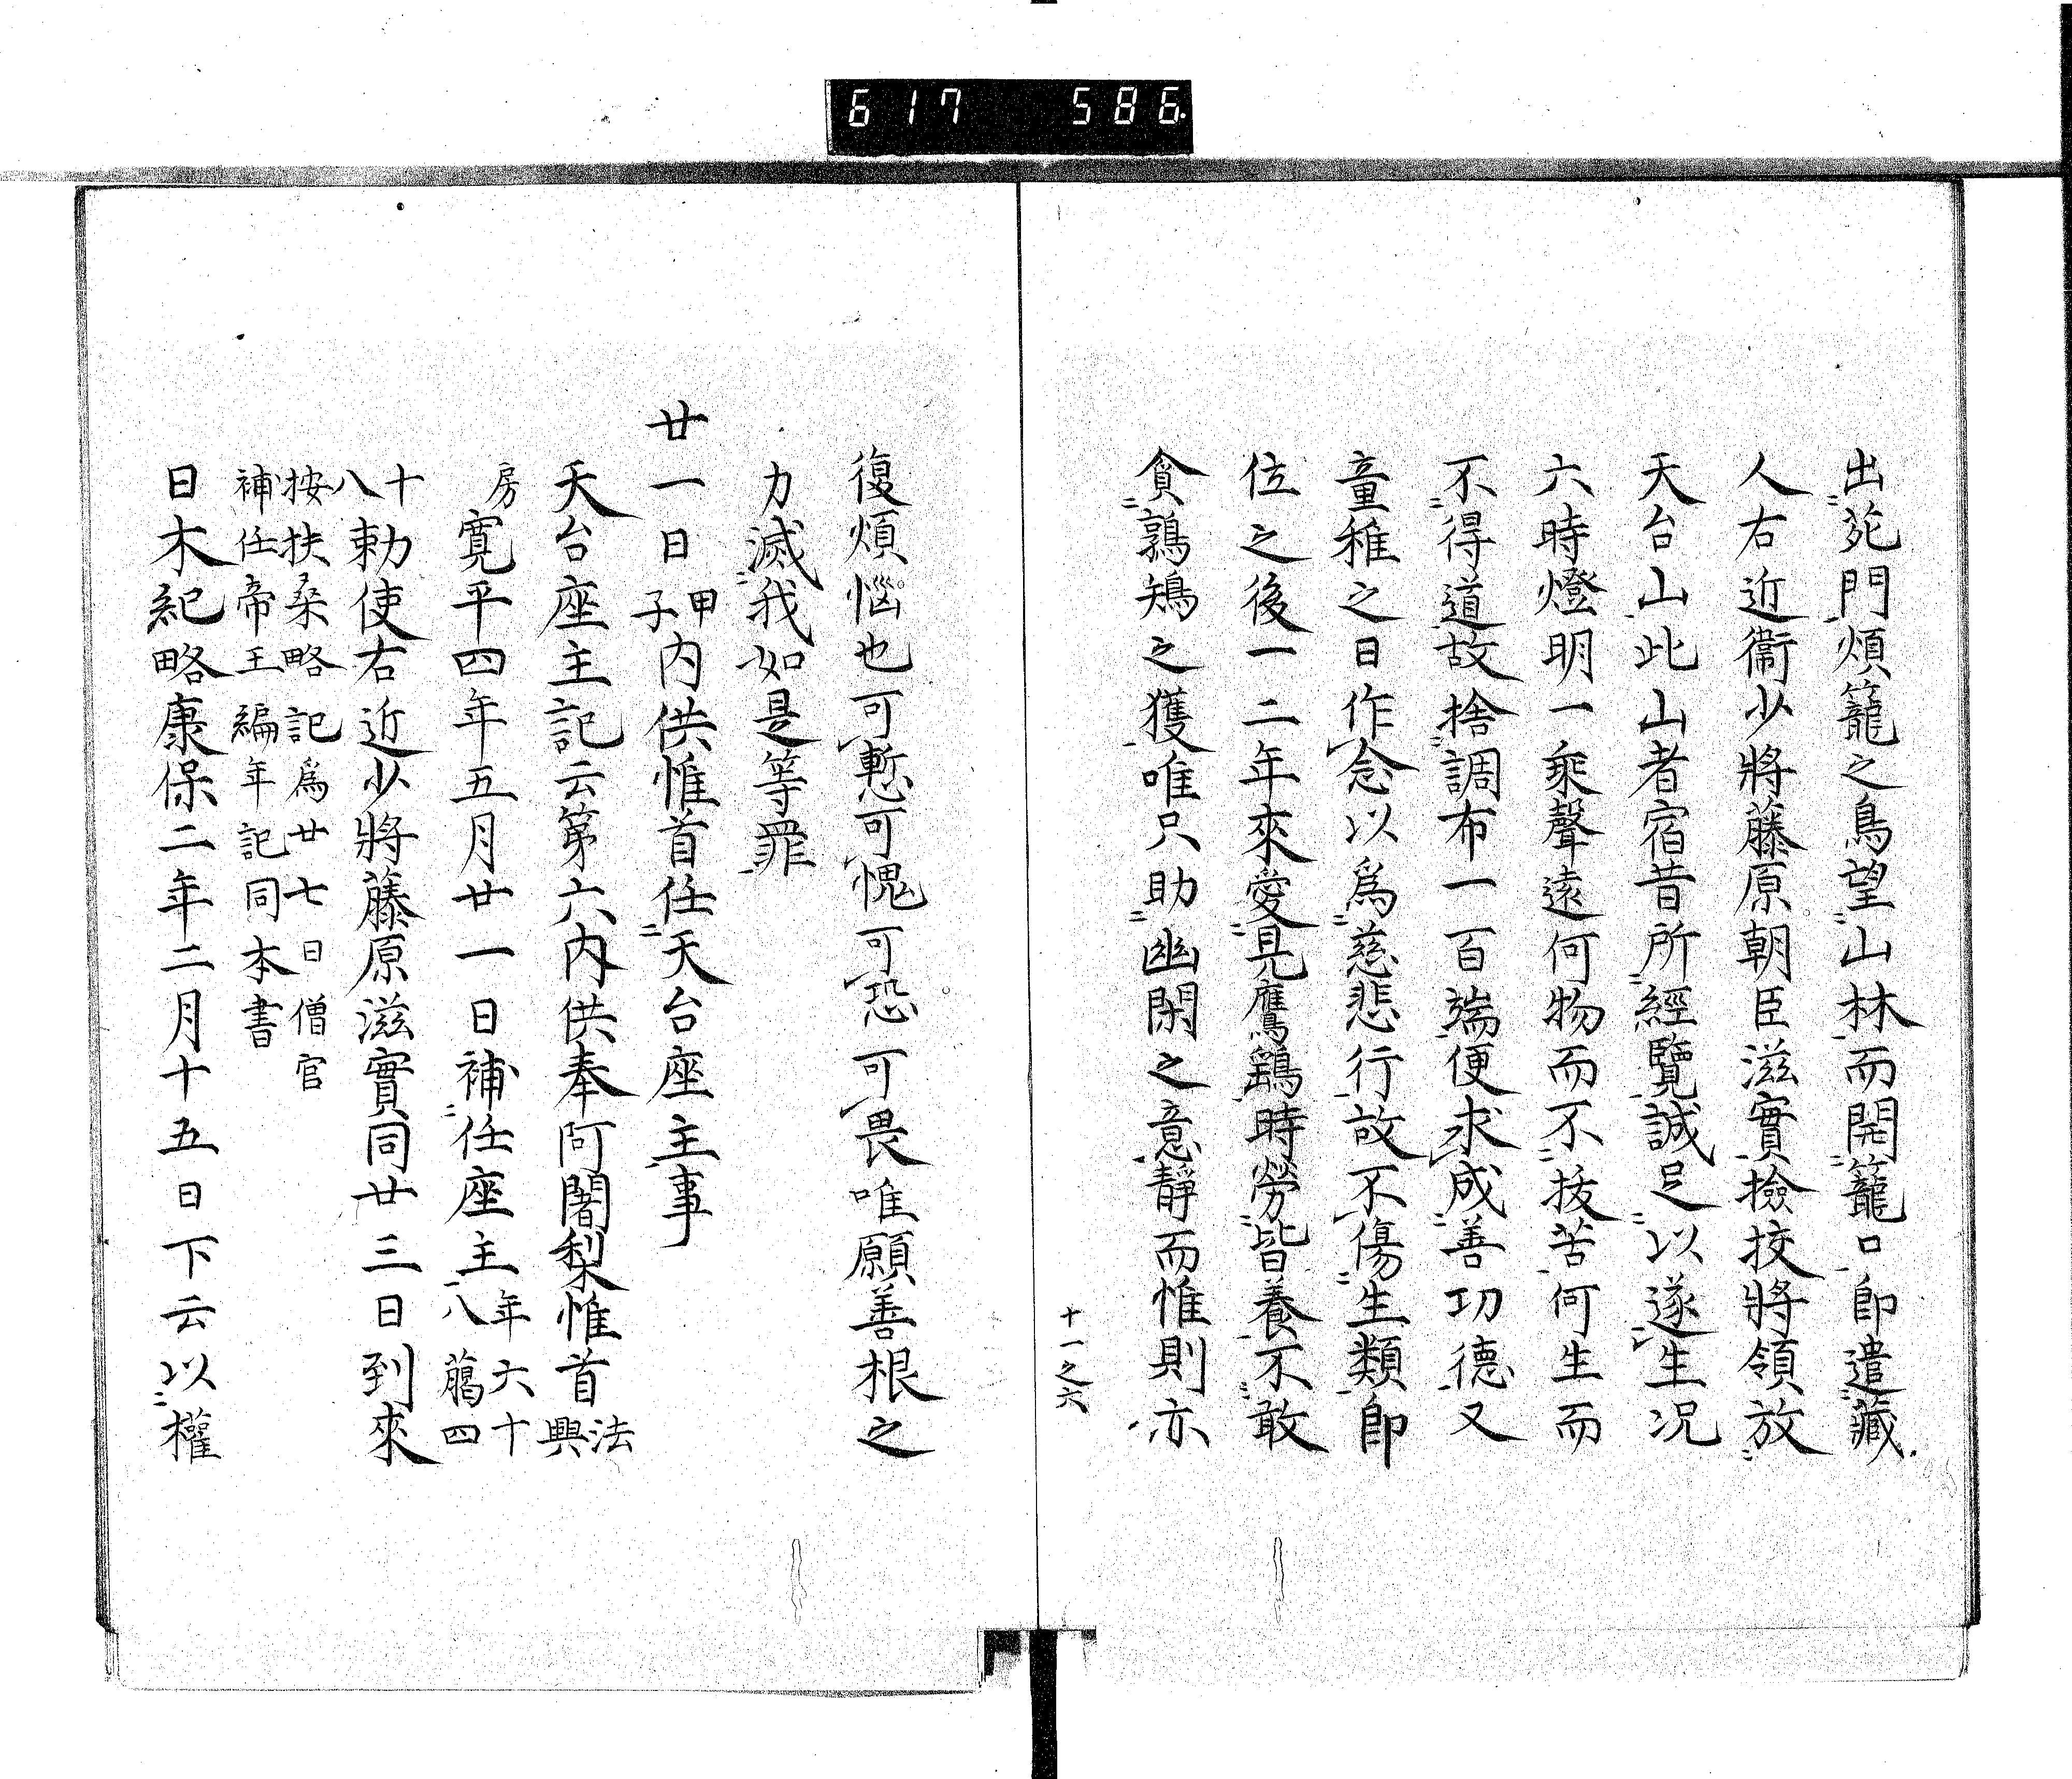 617 586
出苑門煩籠之鳥望山林而開籠口卽遣藏
人右近衞少將藤原朝臣滋實撿挍將領放
天台山此山者宿昔所經覽誠足以遂生況
六時燈明一乘聲遠何物而不拔苦何生而
不得道故捨調布一百端便求成善功德又
童稚之日作念以爲慈悲行故不傷生類卽
位之後一二年來愛見鷹鷂時勞皆養不敢
貪鶉鴙之獲唯只助幽閑之意靜而惟則亦
十一之六
復煩惱也可慙可愧可恐可畏唯願善根之
力滅我如是等罪
廿一日甲子內供惟首任天台座主事
天台座主記云第六內供奉阿闍梨惟首法興
房寛平四年五月廿一日補任座主年六十八﨟四
十八勅使右近少將藤原滋實同廿三日到來
按扶桑略記爲廿七日僧官
補任帝王編年記同本書
日木紀略康保二年二月十五日下云以權